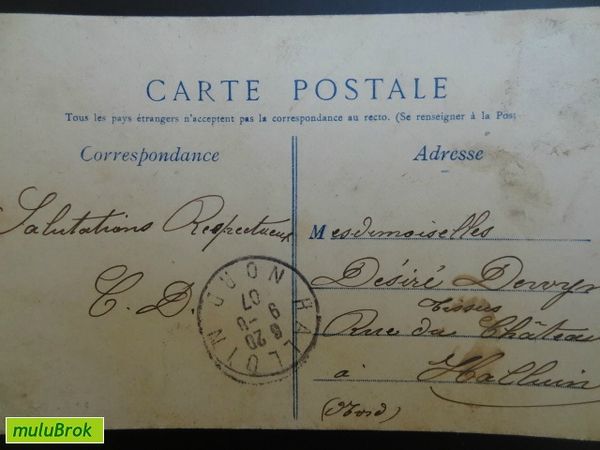 CARTE POSTALE
Tous les pays étrangers n'acceptent pas la correspondance au recto. (Se renseigner à la Post
Correspondance
Salutations Respectueux
C. D.
Adresse
Mesdemoiselles
Désiré
Tissus
Rue du Château
à Halluin
(Nord)
HALLUIN
NORD
muluBrok